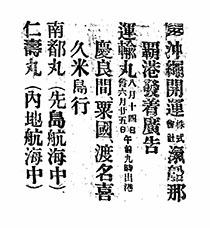 沖繩開運株式會社滊船那
覇港發着廣告
運輸丸八月十四日午前九時出港
舊六月廿五日
慶良間 粟國 渡名喜
久米島行
南都丸(先島航海中)
仁壽丸(內地航海中)